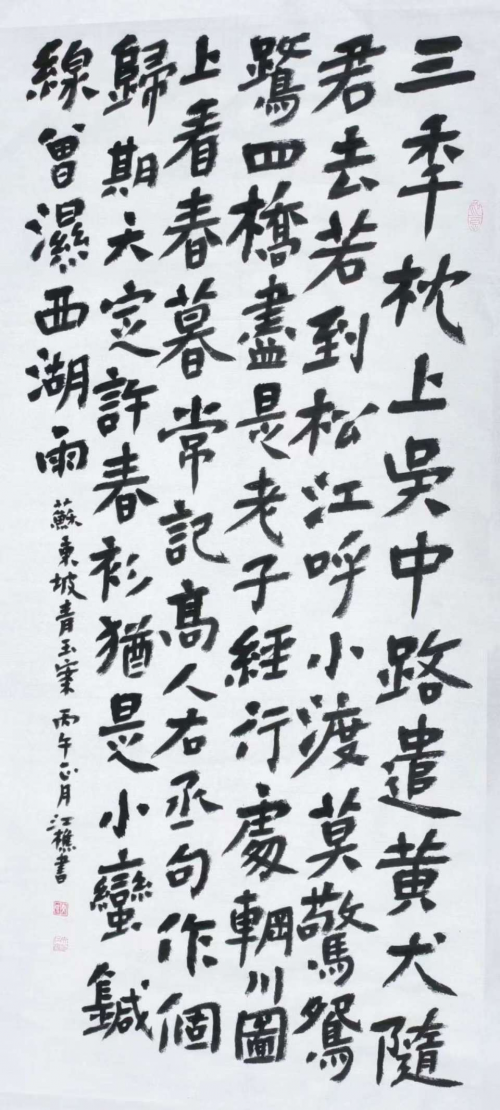 三秊枕上吳中路遣黃犬隨
君去若到松江呼小渡莫驚鴛
鷺四橋盡是老子經行處輞川圖
上看春暮常記高人右丞句作個
歸期天定許春衫猶是小蠻鍼
線曾濕西湖雨 蘇東坡青玉案 丙午正月江樵書